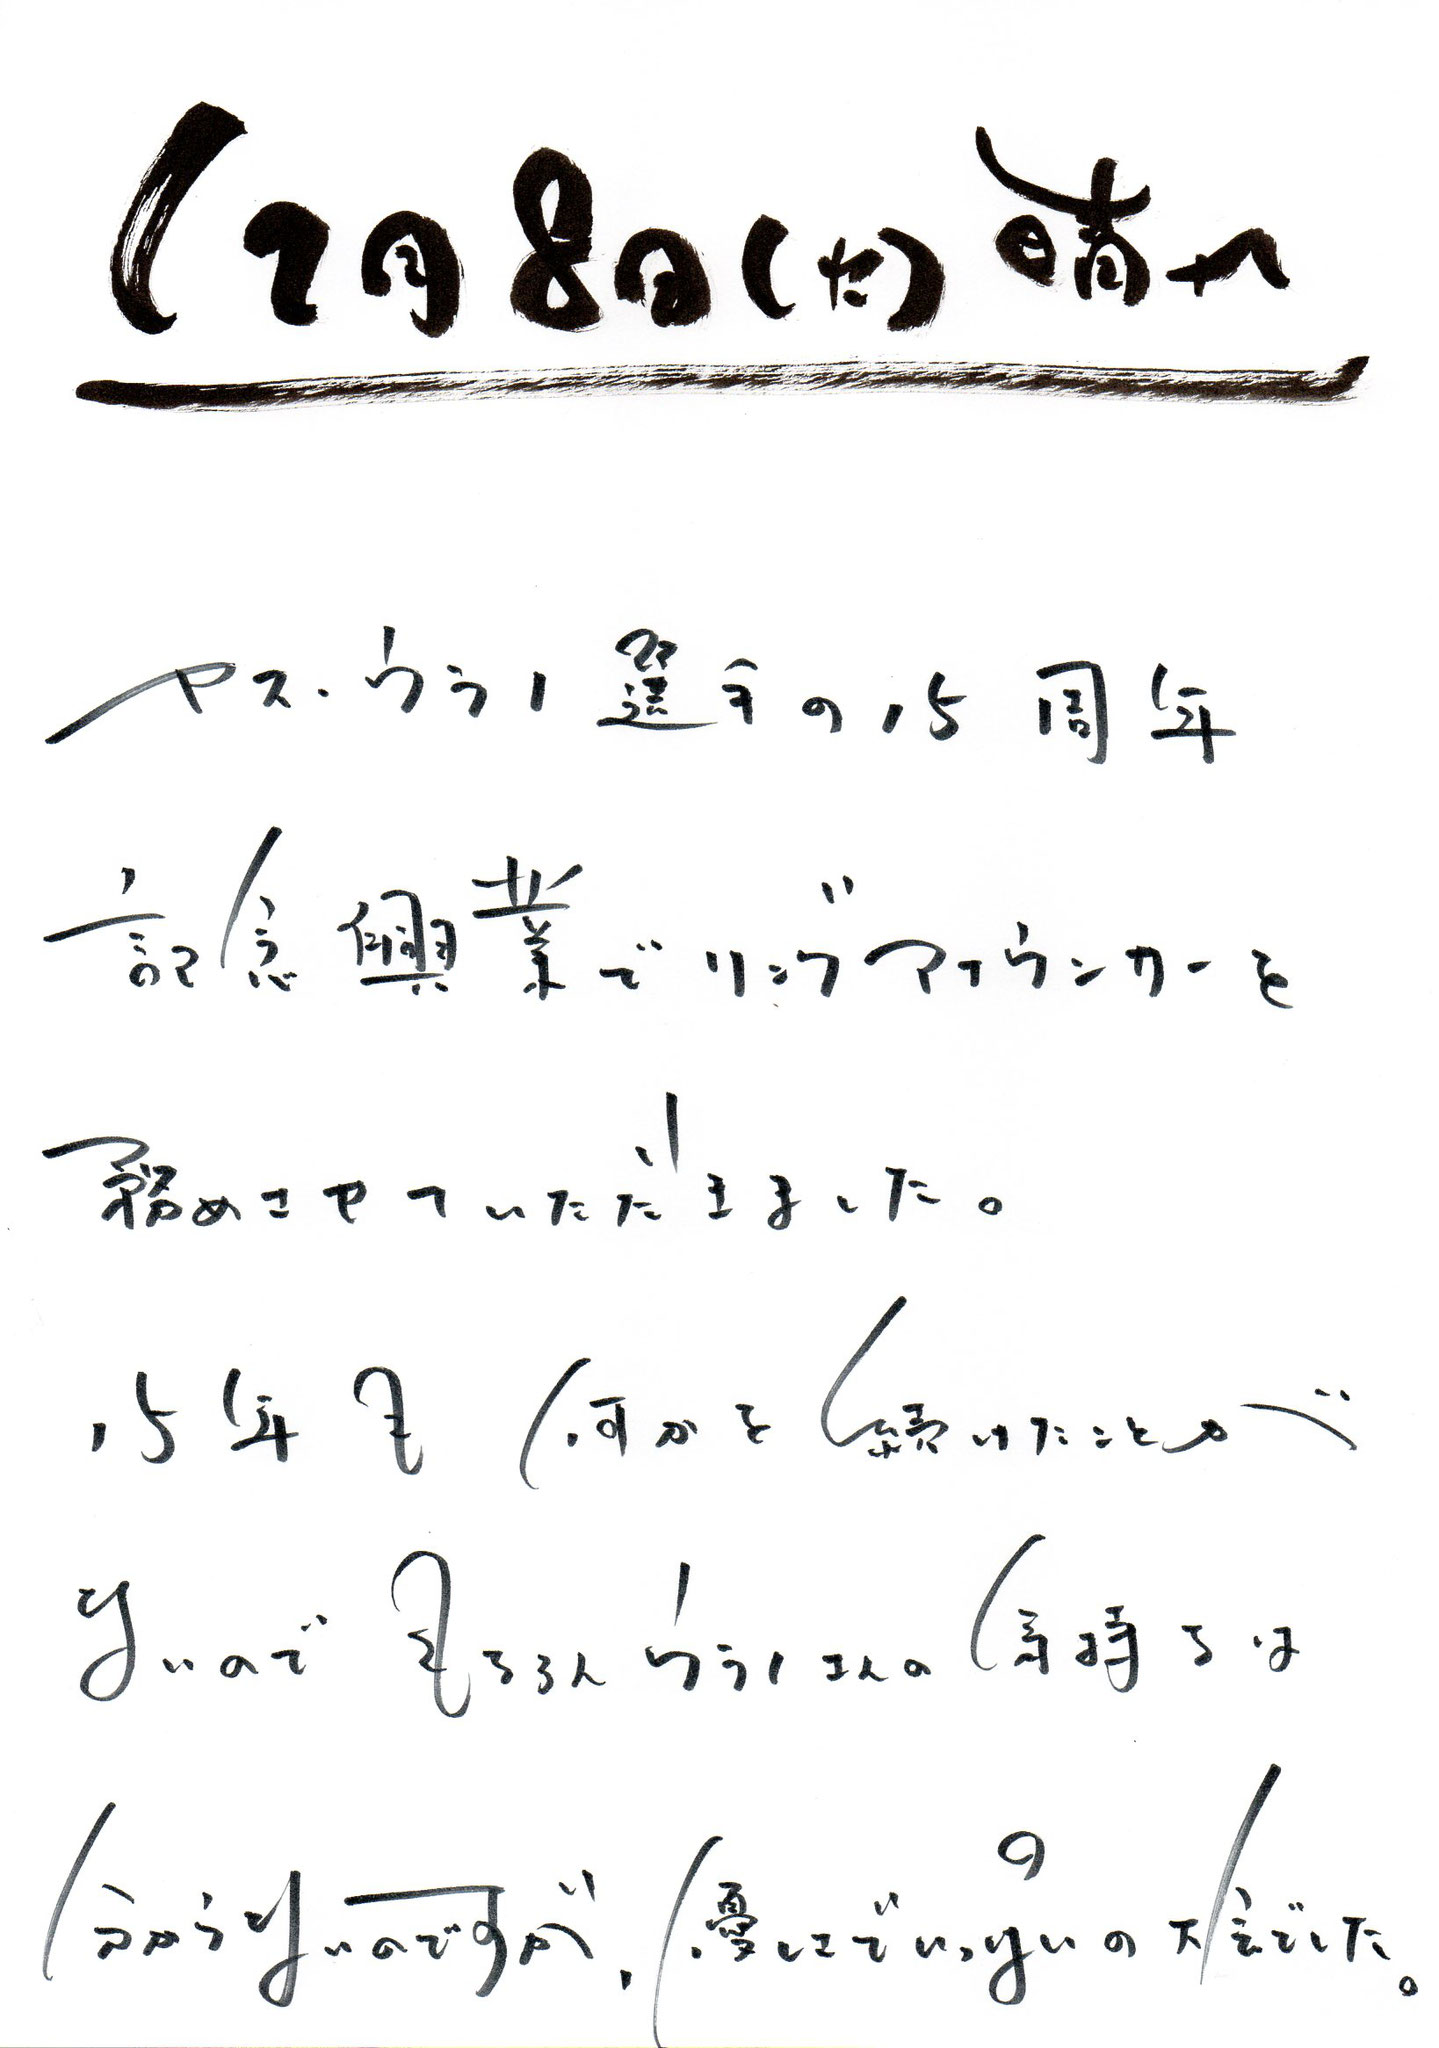 12月8日(火)晴れ
ヤス・ウラノ選手の15周年
記念興業でリングアナウンサーを
務めさせていただきました。
15年も何かを続けたことが
ないのでもちろんウラノさんの気持ちは
分からないのですが、優しさでいっぱいの大会でした。